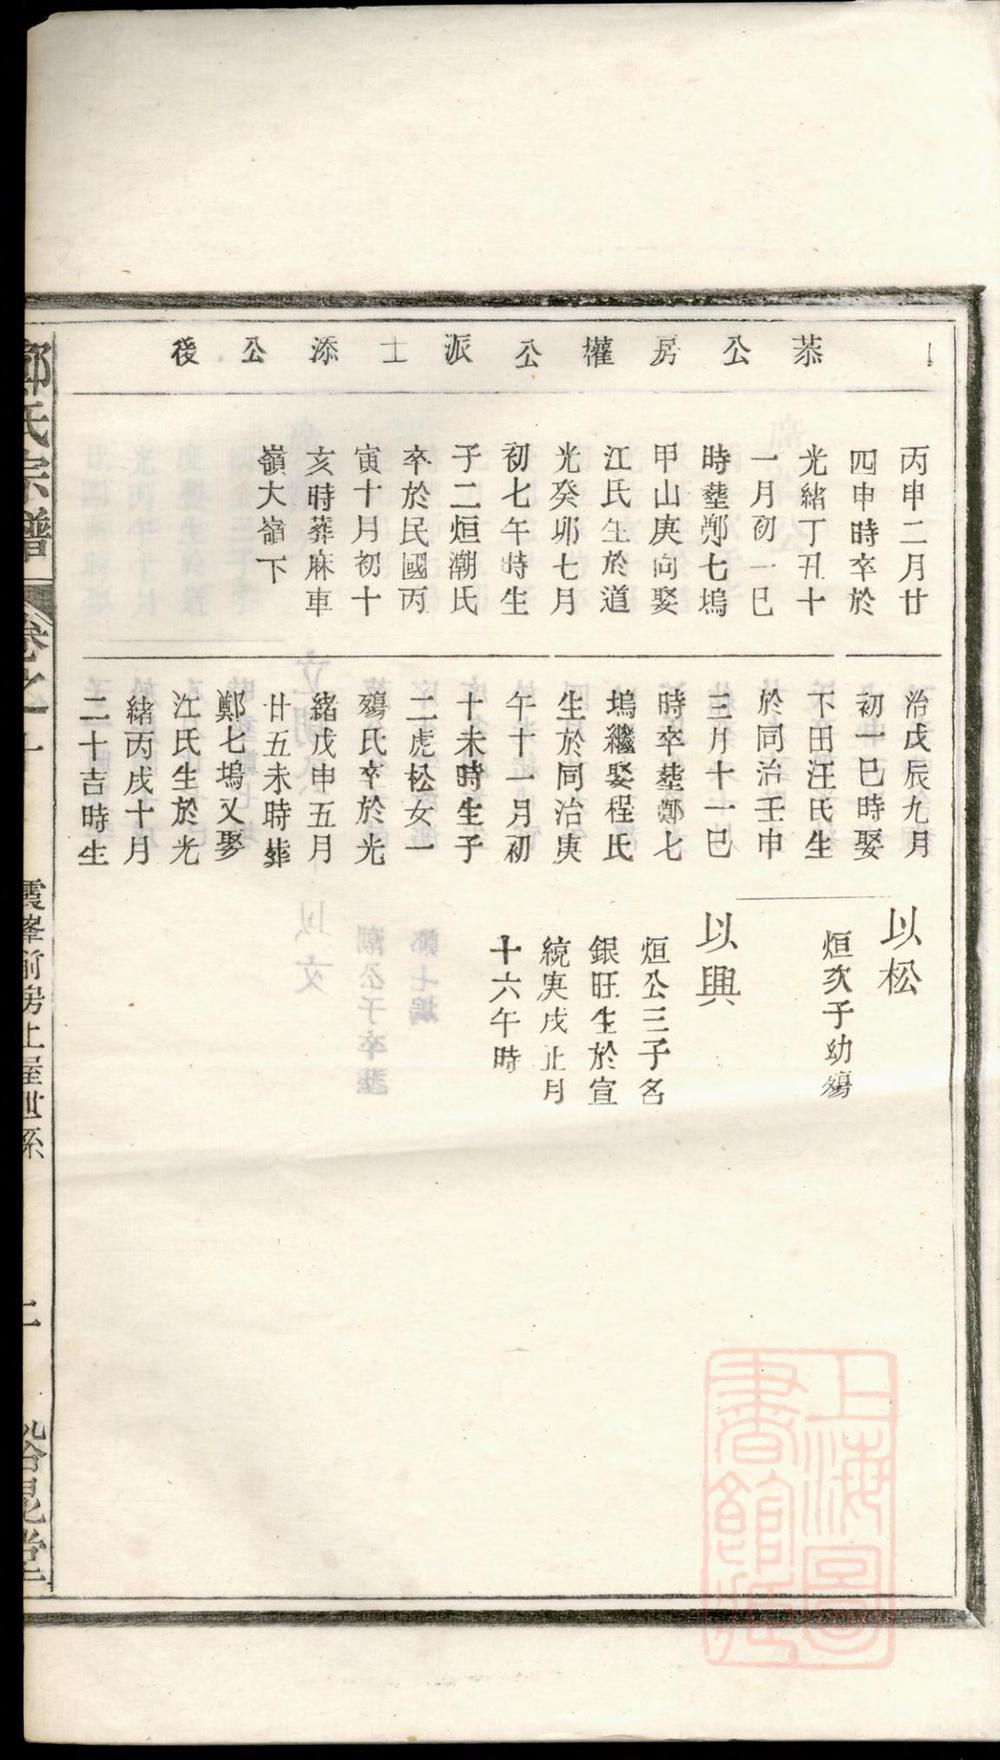 恭公房權公派士添公後
丙申二月廿
四申時卒於
光緒丁丑十
一月初一巳
時塟鄭七塢
甲山庚向娶
江氏生於道
光癸卯七月
初七午時生
子二烜潮氏
卒於民國丙
寅十月初十
亥時葬麻車
嶺大嶺下
治戊辰九月
初一巳時娶
下田汪氏生
於同治壬申
三月十一巳
時卒塟鄭七
塢繼娶程氏
生於同治庚
午十一月初
十未時生子
二虎松女一
殤氏卒於光
緒戊申五月
廿五未時葬
鄭七塢又娶
江氏生於光
緒丙戌十月
二十吉時生
以松
烜次子幼殤
以興
烜公三子名
銀旺生於宣
統庚戌正月
十六午時
鄭氏宗譜
卷之
霞峯前房上屋世系
上海圖書館藏